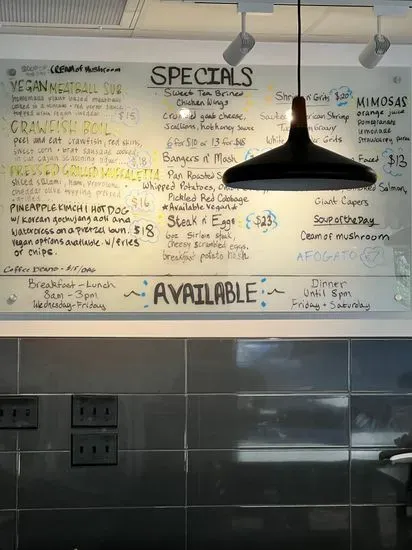 SOUP OF THE DAY CREAM of MUSHROOM
VEGAN MEATBALL SUB
homemade plant based meatballs
$15
CRAWFISH BOIL
peel and eat crawfish, red skins,
sweet corn + brat sausage cooked
in our cajun seasoning
$18
PRESSED GRILLED MUFFALETTA
sliced salami, ham, provolone,
cheddar, olive
$16
PINEAPPLE KIMCHI HOTDOG
w/ Korean gochujang aoli and
watercress on a pretzel bun.
vegan options available w/ fries
or chips.
$18
Coffee Beans - $15/BAG
SPECIALS
Sweet Tea Brined
Chicken Wings
goat cheese,
Scallions, hot honey sauce
6 for $10 or 13 for
Bangers n' Mash
Pan Roasted
Whipped Potatoes,
Pickled Red Cabbage
*Available Vegan*
Steak n' Eggs $23
6oz Sirloin steak,
Cheesy scrambled eggs,
breakfast potato hash
n' Grits $20
Shrimp
Gravy
Grits
Salmon,
Giant Capers
Soup of the Day
Cream of mushroom
AFOGATO $7
MIMOSAS
orange juice
pomegranate
lemonade
strawberry
$13
Breakfast - Lunch
8am - 3pm
Wednesday - Friday
AVAILABLE
Dinner
Until 8pm
Friday + Saturday